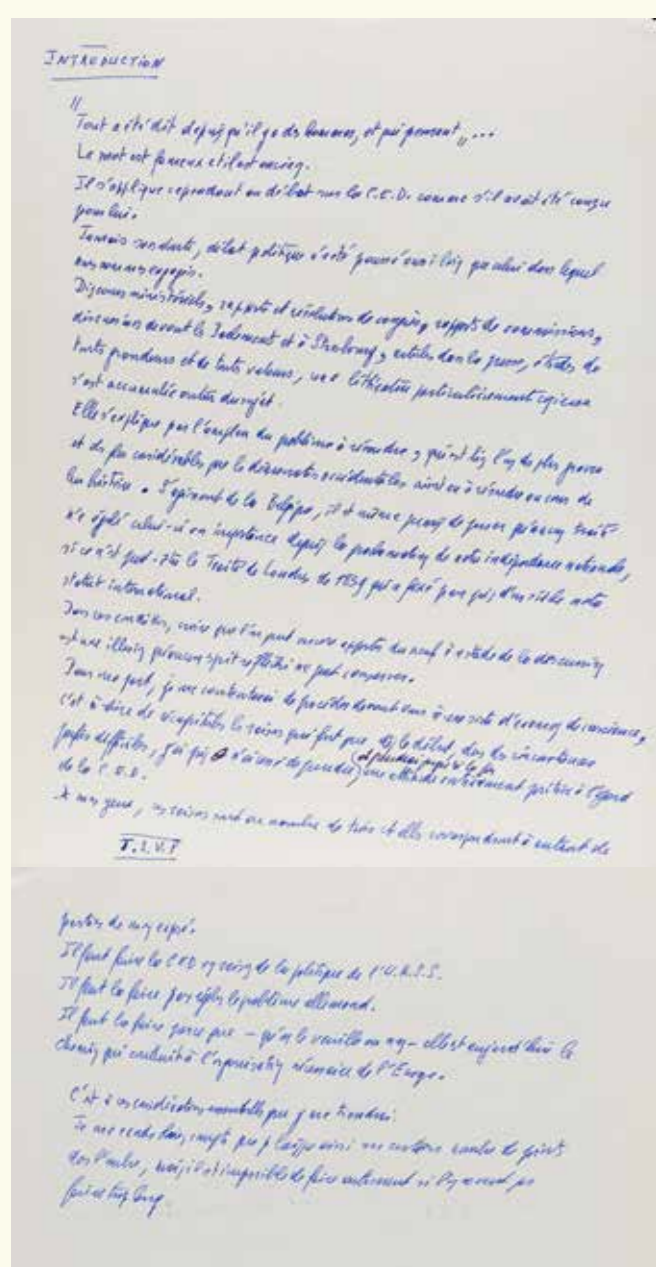 INTRODUCTION
"Tout a été dit depuis qu'il y a des hommes, et qui pensent"...
Le mot est fameux et il est ancien.
Il s'applique cependant au débat sur la C.E.D. comme s'il avait été conçu
pour lui.
Jamais sans doute, débat politique n'a été poussé aussi loin que celui dans lequel
nous sommes engagés.
Discours ministériels, rapports et résolutions de congrès, rapports de commissions,
discussions devant le Parlement et à Strasbourg, articles dans la presse, études de
toutes grandeurs et de toutes valeurs, une littérature particulièrement copieuse
s'est accumulée autour du sujet.
Elle s'explique par l'ampleur du problème à résoudre, qui est l'un des plus graves
et des plus considérables que les démocraties occidentales aient eu à résoudre au cours de
leur histoire. S'agissant de la Belgique, il est même permis de penser qu'aucun traité
n'a égalé celui-ci en importance depuis la proclamation de notre indépendance nationale,
si ce n'est peut-être le Traité de Londres de 1839 qui a fixé pour plus d'un siècle notre
statut international.
Dans ces conditions, croire que l'on peut encore apporter du neuf à ce stade de la discussion
est une illusion qu'aucun esprit réfléchi ne peut conserver.
Pour ma part, je me contenterai de procéder devant vous à une sorte d'examen de conscience,
c'est-à-dire de récapituler les raisons qui font que, dès le début, dans des circonstances
parfois difficiles, j'ai pris et n'ai cessé de prendre (et prendrai jusqu'à la fin) une attitude entièrement positive à l'égard
de la C.E.D.
A mes yeux, ces raisons sont au nombre de trois et elles correspondent à autant de
T.S.V.P
parties de mon exposé.
Il faut faire la CED en raison de la politique de l'U.R.S.S.
Il faut la faire pour régler le problème allemand.
Il faut la faire parce que – qu'on le veuille ou non – elle est aujourd'hui le
chemin qui conduit à l'organisation nécessaire de l'Europe.
C'est à ces considérations essentielles que je me tiendrai.
Je me rends bien compte que je laisse ainsi un certain nombre de points
dans l'ombre, mais il est impossible de faire autrement si l'on ne veut pas
faire trop long.